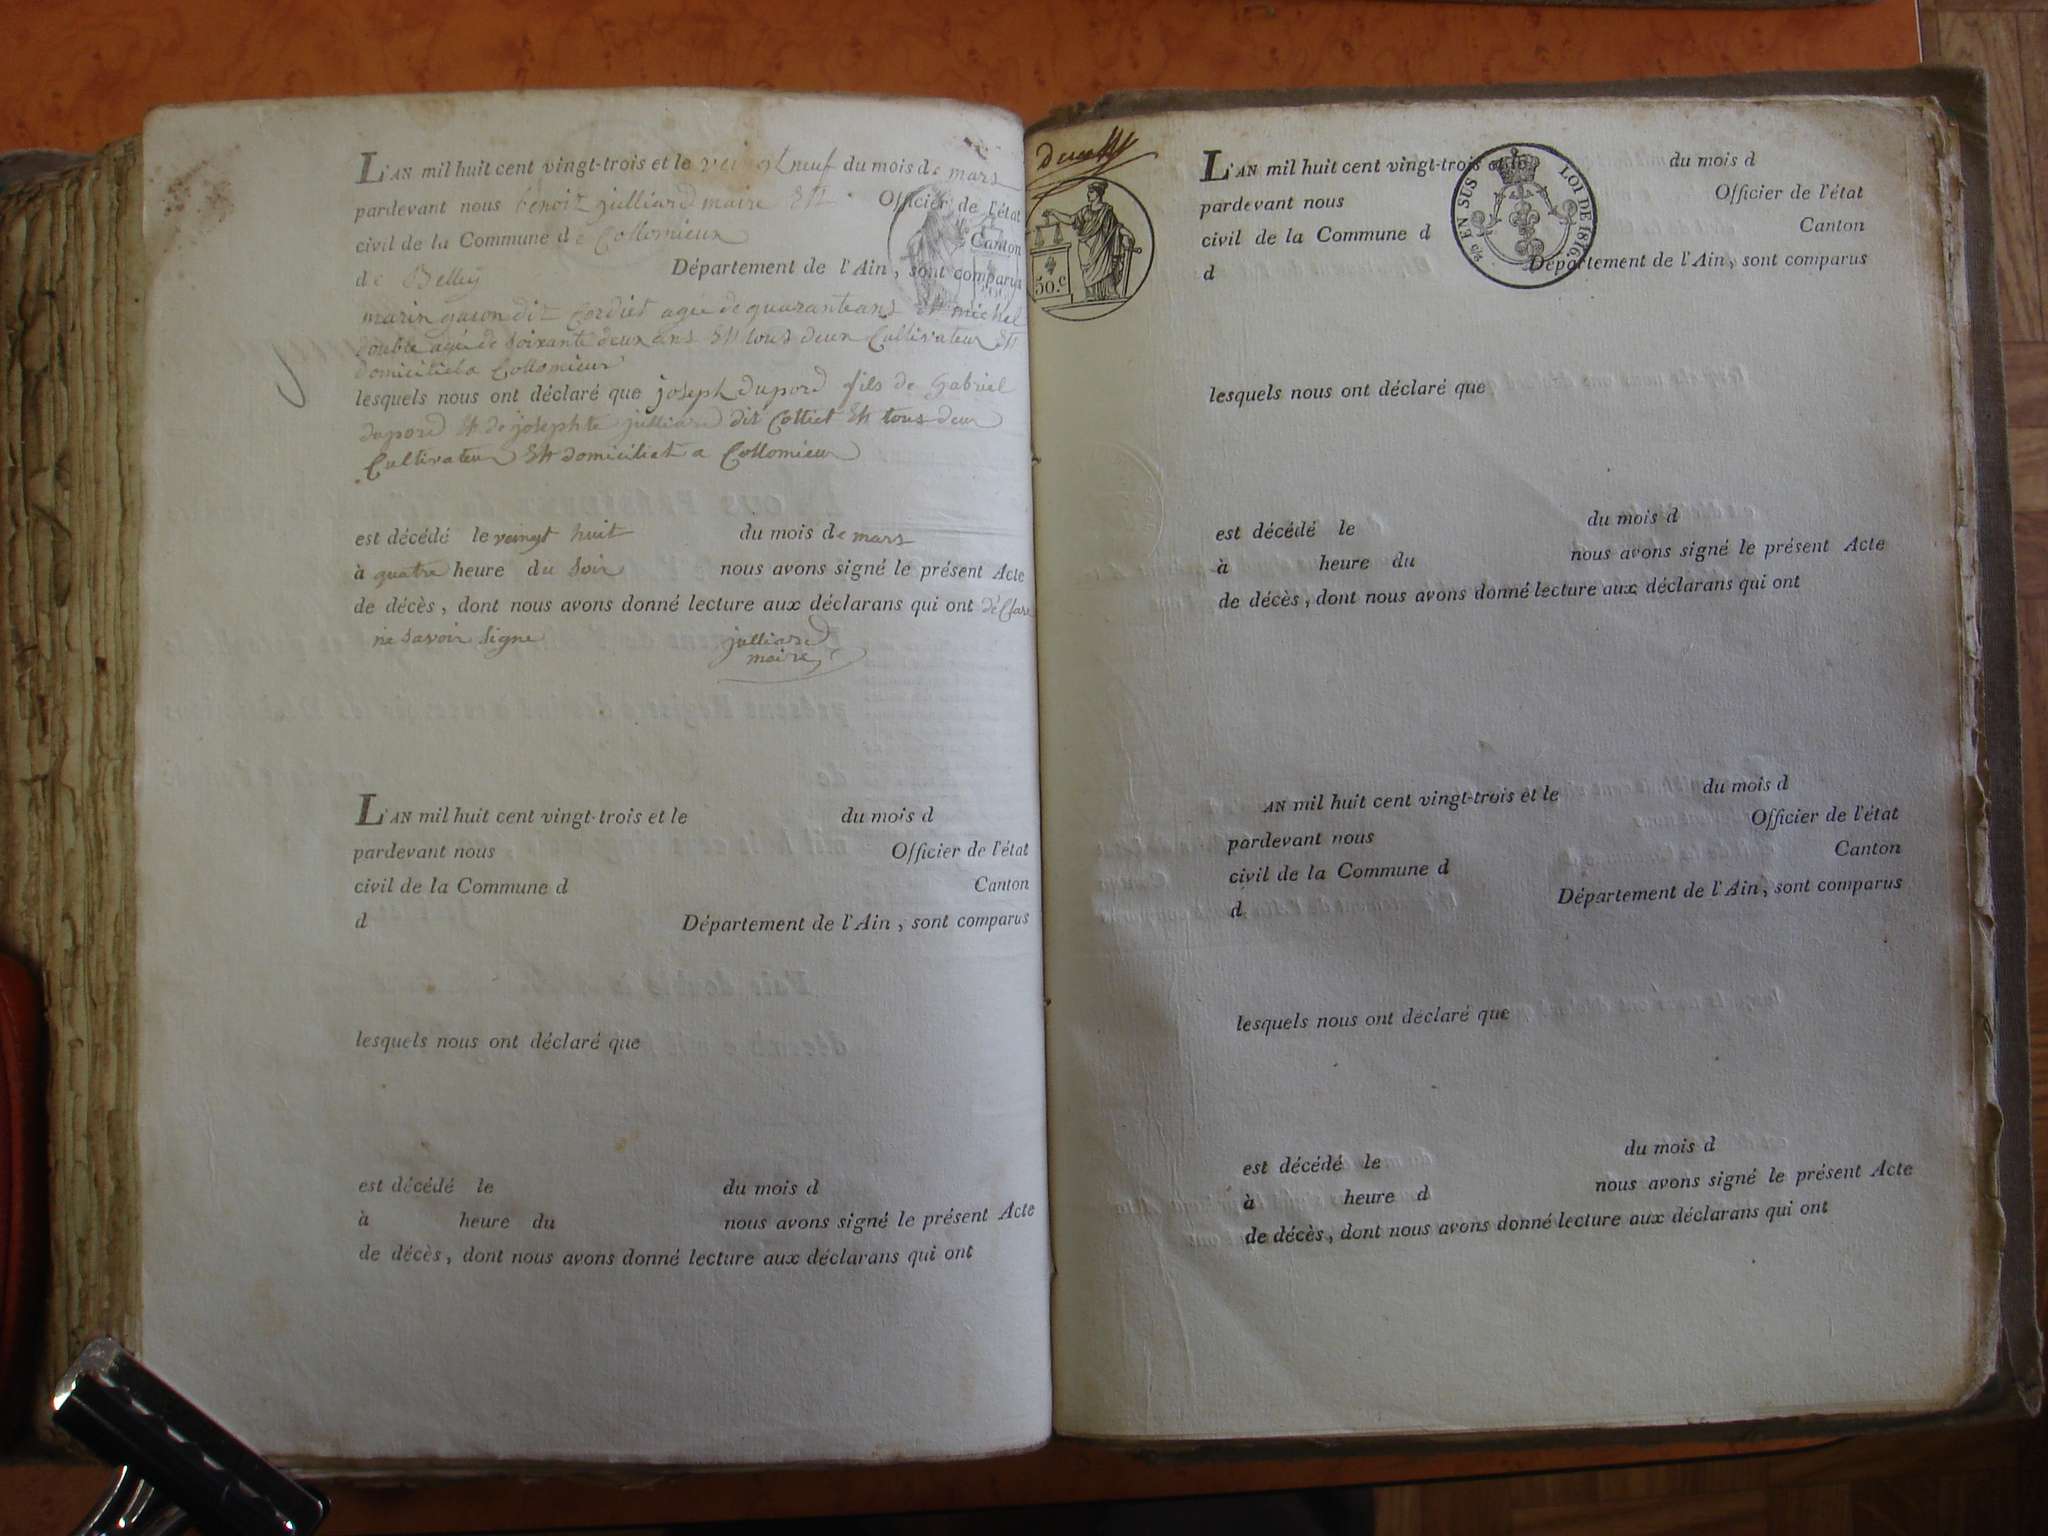 L'AN mil huit cent vingt-trois et le veingt neuf du mois de mars
pardevant nous benoit julliard maire Officier de l'état
civil de la Commune de Collomieux Canton
de Belley Département de l'Ain, sont comparus
marin gacon dit Cordiet agée de quarante ans et michel
double agé de soixante deux ans et tous deux Cultivateur et
domiciliet a Collomieux
lesquels nous ont déclaré que joseph dupord fils de Gabriel
dupord et de josephte julliard dit Colliet et tous deux
Cultivateur et domiciliet a Collomieux
est décédé le veingt huit du mois de mars
à quatre heure du soir nous avons signé le présent Acte
de décès, dont nous avons donné lecture aux déclarans qui ont déclare
ne savoir signe julliard
maire
L'AN mil huit cent vingt-trois et le du mois d
pardevant nous Officier de l'état
civil de la Commune d Canton
d Département de l'Ain, sont comparus
lesquels nous ont déclaré que
est décédé le du mois d
à heure du nous avons signé le présent Acte
de décès, dont nous avons donné lecture aux déclarans qui ont
50.c
EN SUS LOI DE 1816.
L'AN mil huit cent vingt-trois et le du mois d
pardevant nous Officier de l'état
civil de la Commune d Canton
d Département de l'Ain, sont comparus
lesquels nous ont déclaré que
est décédé le du mois d
à heure du nous avons signé le présent Acte
de décès, dont nous avons donné lecture aux déclarans qui ont
AN mil huit cent vingt-trois et le du mois d
pardevant nous Officier de l'état
civil de la Commune d Canton
d Département de l'Ain, sont comparus
lesquels nous ont déclaré que
est décédé le du mois d
à heure d nous avons signé le présent Acte
de décès, dont nous avons donné lecture aux déclarans qui ont